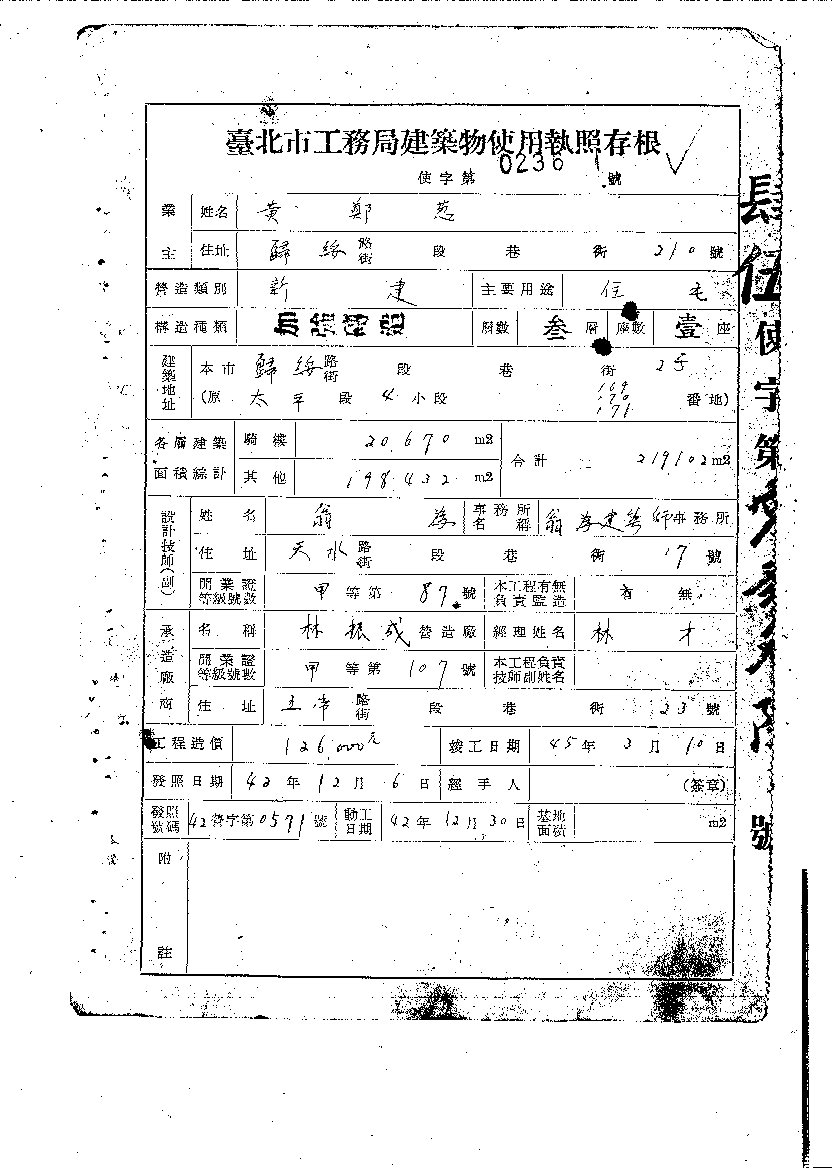 臺北市工務局建築物使用執照存根
使字第 0236 號
業主 姓名 黃 鄭
住址 歸綏 路街 段 巷 街 210 號
營造類別 新 建 主要用途 住 宅
構造種類 層數 叁 層 座數 壹 座
建築地址 本市 歸綏 路街 段 巷 街
(原 太平 段 4 小段 169 170 171 番地)
各層建築面積綜計 騎樓 20.670 m2 合計 219102 m2
其他 198.432 m2
設計技師(副) 姓名 翁 事務所名稱 翁 建築師事務所
住址 天水 路街 段 巷 街 17 號
開業證等級號數 甲 等第 87 號 本工程有無負責監造 有 無
承造廠商 名稱 林振成 營造廠 經理姓名 林 才
開業證等級號數 甲 等第 107 號 本工程負責技師副姓名
住址 路街 段 巷 街 23 號
工程造價 126,000元 竣工日期 45年 3月 10日
發照日期 42年 12月 6日 經手人 (簽章)
發照號碼 42營字第0571號 動工日期 42年12月30日 基地面積 m2
附註
肆伍使字第 號